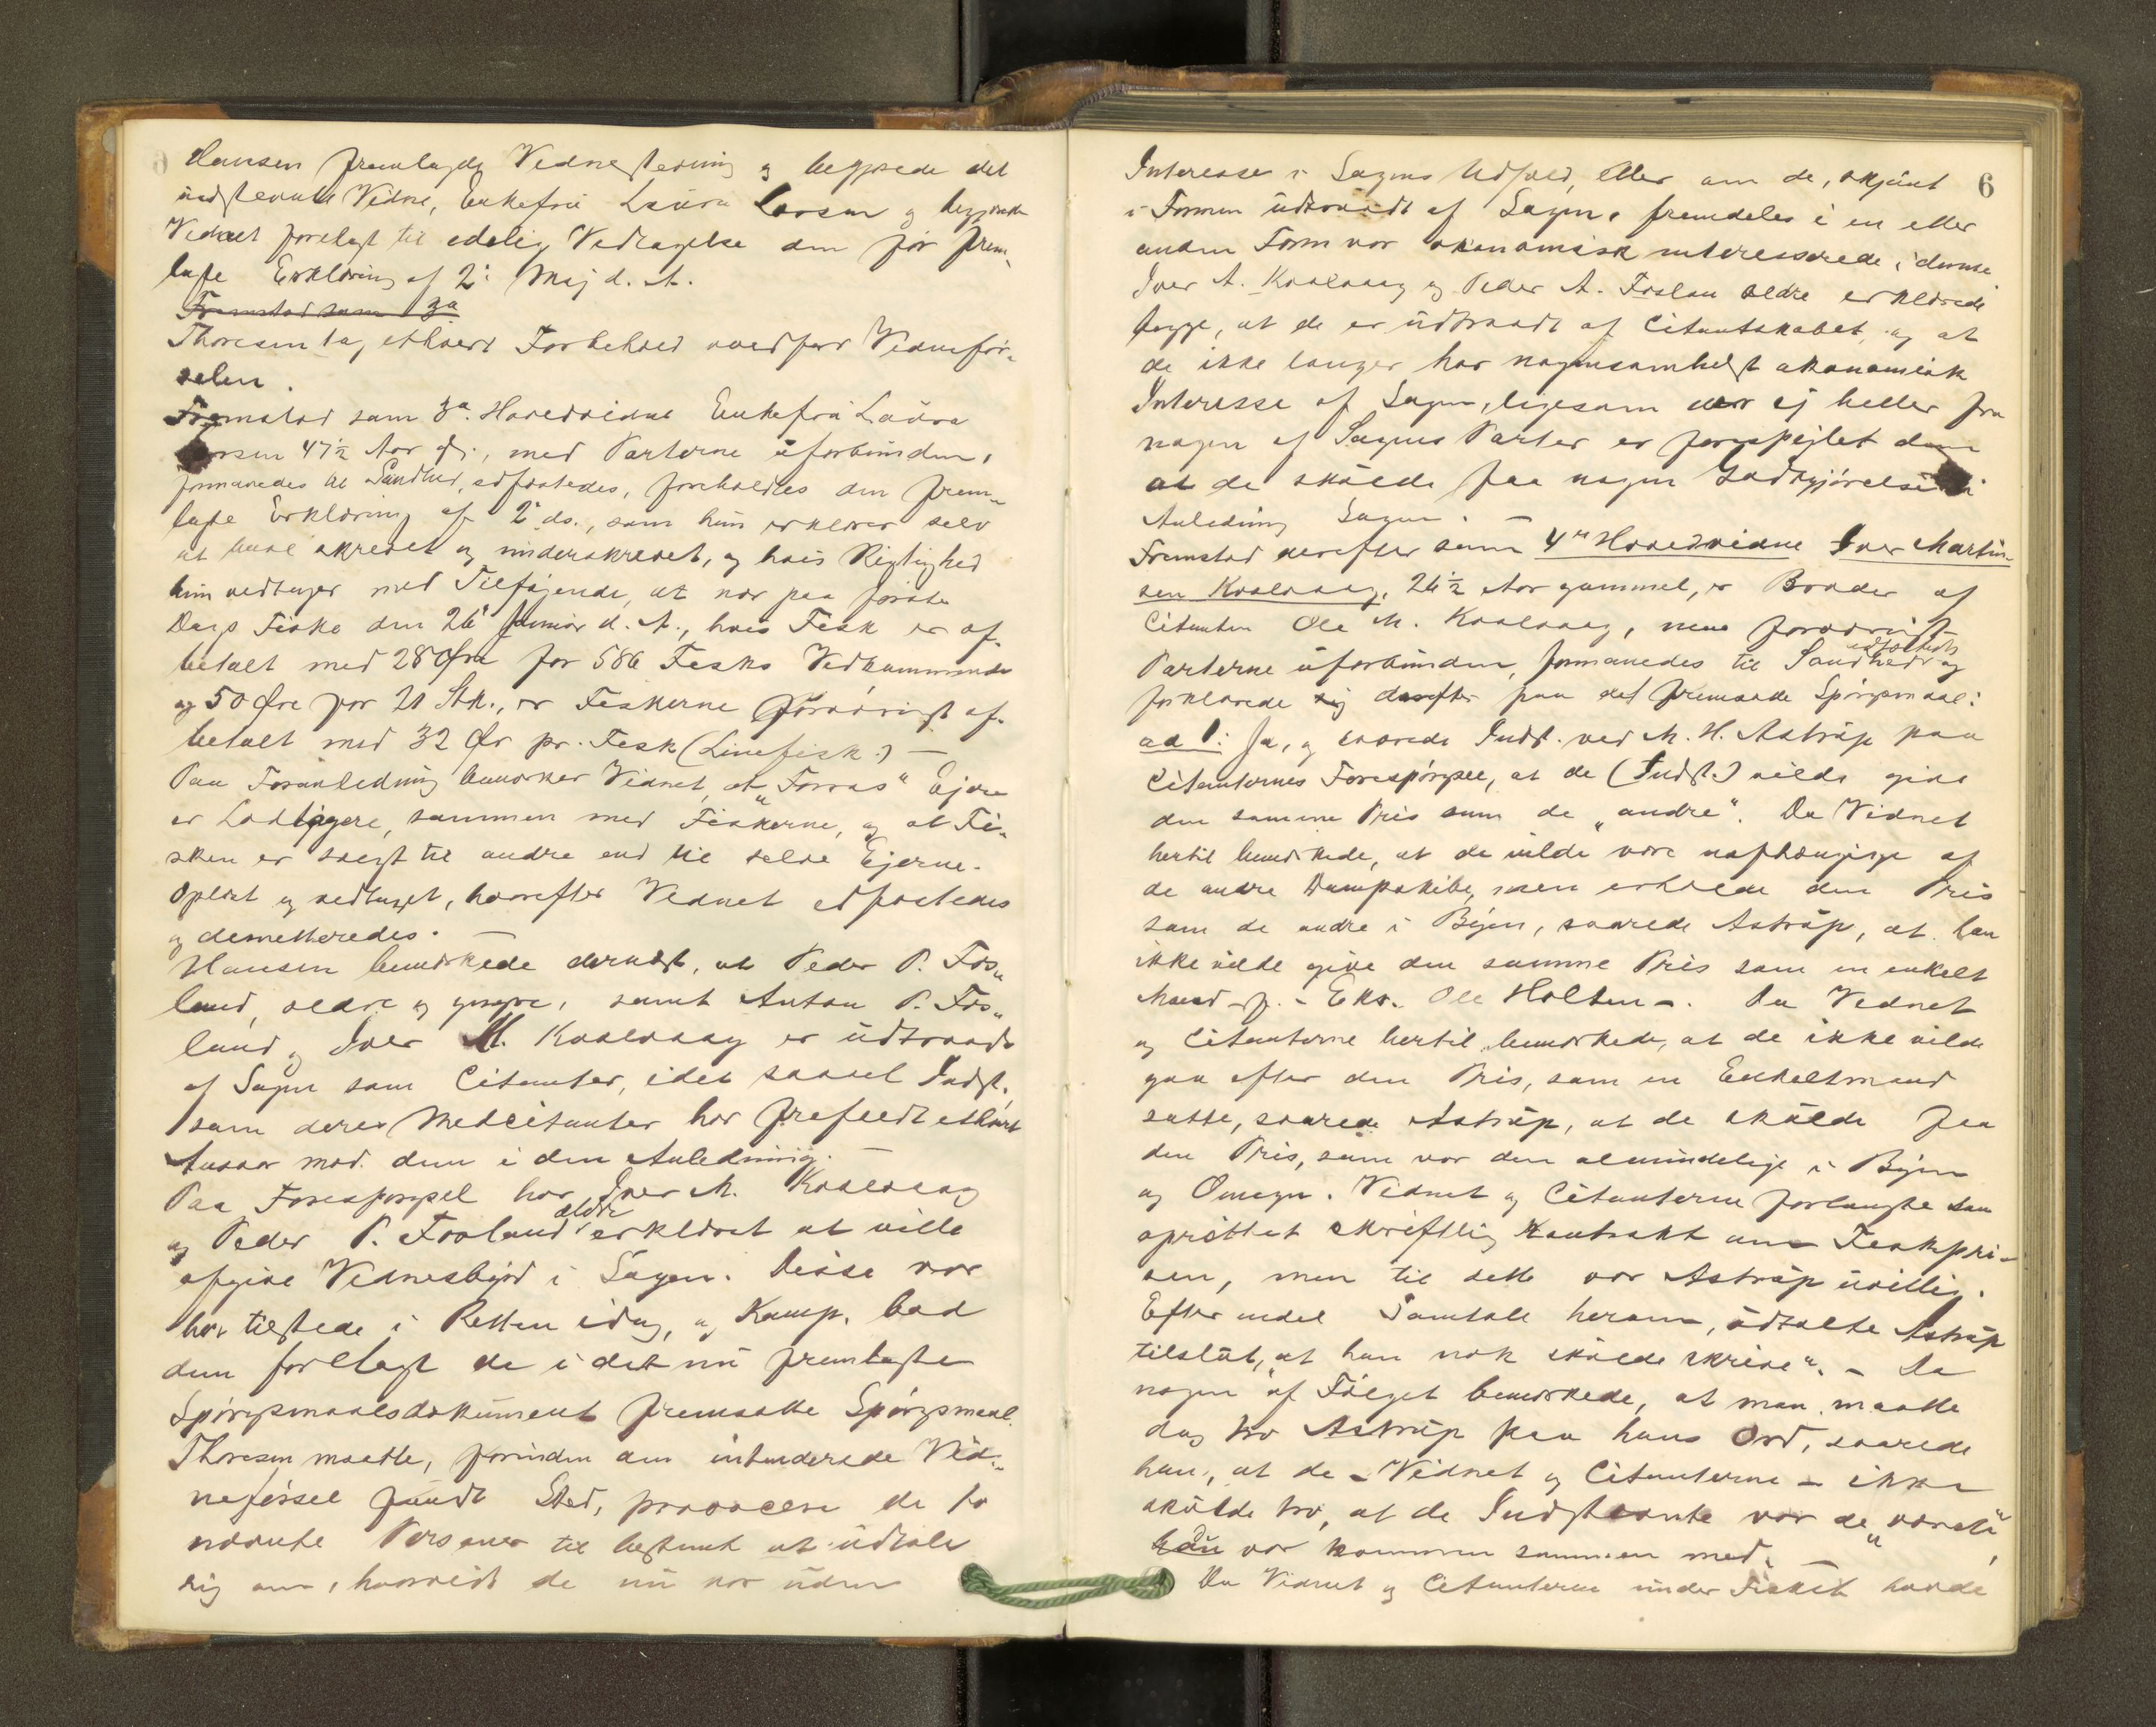 Hansen fremlagde Vidnestevning og begjærede det
indstevnte Vidne, Enkefru Laura Larsen og begjærede
Vidnet forelagt til edelig Vedtagelse den før frem-
lagte Erklæring af 2den Maj d. A.
Fremstod som 3a
Thoresen tog ethvert Forbehold overfor Vidnefør-
selen.
Fremstod som 3a Hovedvidne Enkefru Laura
Larsen 47½ Aar gl., med Parterne uforbunden,
formanedes til Sandhed, edfæstedes, foreholdtes den frem-
lagte Erklæring af 2 ds., som hun erklærer selv
at have skrevet og underskrevet, og hvis Rigtighed
hun vedtager med Tilføjende, at når paa første
Dags Fiske den 26 Januar d. A., hvis Fisk er af-
betalt med 28 Øre for 586 Fisks Vedkommende
og 50 Øre for 21 Stk., er Fiskerne forøvrigt af-
betalt med 32 Ør pr. Fisk (Linefisk.) —
Paa Foranledning bemærker Vidnet, at "Forras" Ejere
er Lodtagere, sammen med Fiskerne, og at Fi-
sken er solgt til andre end til selve Ejerne.
Oplæst og vedtaget, hvorefter Vidnet edfæstedes
og demitteredes. —
Hansen bemærkede dernæst, at Peder P. Fos-
land, ældre og yngre, samt Anton P. Fos-
land og Iver M. Kvalvaag er udtraadt
af Sagen som Citanter, idet saavel Indst.
som deres Medcitanter har frafaldt ethvert
Ansvar mod dem i den Anledning. —
Paa Forespørgsel har Iver M. Kvalvaag
og Peder P. Fosland ældre erklæret at ville
afgive Vidnesbyrd i Sagen. Disse var
her tilstede i Retten idag, og Komp. bad
dem forelagt de i det nu fremlagte
Spørgsmaalsdokument fremsatte Spørgsmaal.
Thoresen maatte, forinden den intenderede Vid-
neførsel fandt Sted, provocere de to
nævnte Personer til bestemt at udtale
sig om, hvorvidt de nu var uden
6
Interesse i Sagens Udfald, eller om de, skjønt
i Formen udtraadt af Sagen, fremdeles i en eller
anden Form var økonomisk interesserede i denne
Iver A. Kvalvaag og Peder A. Foslan ældre erklærede
begge, at de er udtraadt af Citantskabet, og at
de ikke længer har nogensomhelst økonomisk
Interesse af Sagen, ligesom der ej heller fra
nogen af Sagens Parter er forespejlet dem
at de skulde faa nogen Godtgjørelse i
Anledning Sagen. —
Fremstod derefter som 4de Hovedvidne Iver Martin-
sen Kvalvaag, 26½ Aar gammel, er Broder af
Citanten Ole M. Kvalvaag, men forøvrigt
Parterne uforbunden, formanedes til Sandhed edfæstedes og
forklarede sig derefter paa det fremsatte Spørgsmaal:
ad 1: Ja, og svarede Indst. ved M. H. Astrup paa
Citanternes Forespørgsel, at de (Indst.) vilde give
den samme Pris som de "andre". Da Vidnet
hertil bemærkede, at de vilde være uafhængige af
de andre Dampskibe, men erholde den Pris
som de andre i Byen, svarede Astrup, at han
ikke vilde give den samme Pris som en enkelt
Mand - f. - Eks. Ole Holten -. Da Vidnet
og Citanterne hertil bemærkede, at de ikke vilde
gaa efter den Pris, som en Enkeltmand
satte, svarede Astrup, at de skulde faa
den Pris, som var den almindelige i Byen
og Omegn. Vidnet og Citanterne forlangte saa
oprettet skriftlig Kontrakt om Fiskepri-
sen, men til dette var Astrup uvillig.
Efter endel Samtale herom, udtalte Astrup
tilslut, "at han nok skulde skrive". – Da
nogen af Følget bemærkede, at man maatte
dog tro Astrup paa hans Ord, svarede
han, at de – Vidnet og Citanterne – ikke
skulde tro, at de Indstevnte var de "værste",
han du var kommen sammen med. —
Da Vidnet og Citanterne under Fisket havde